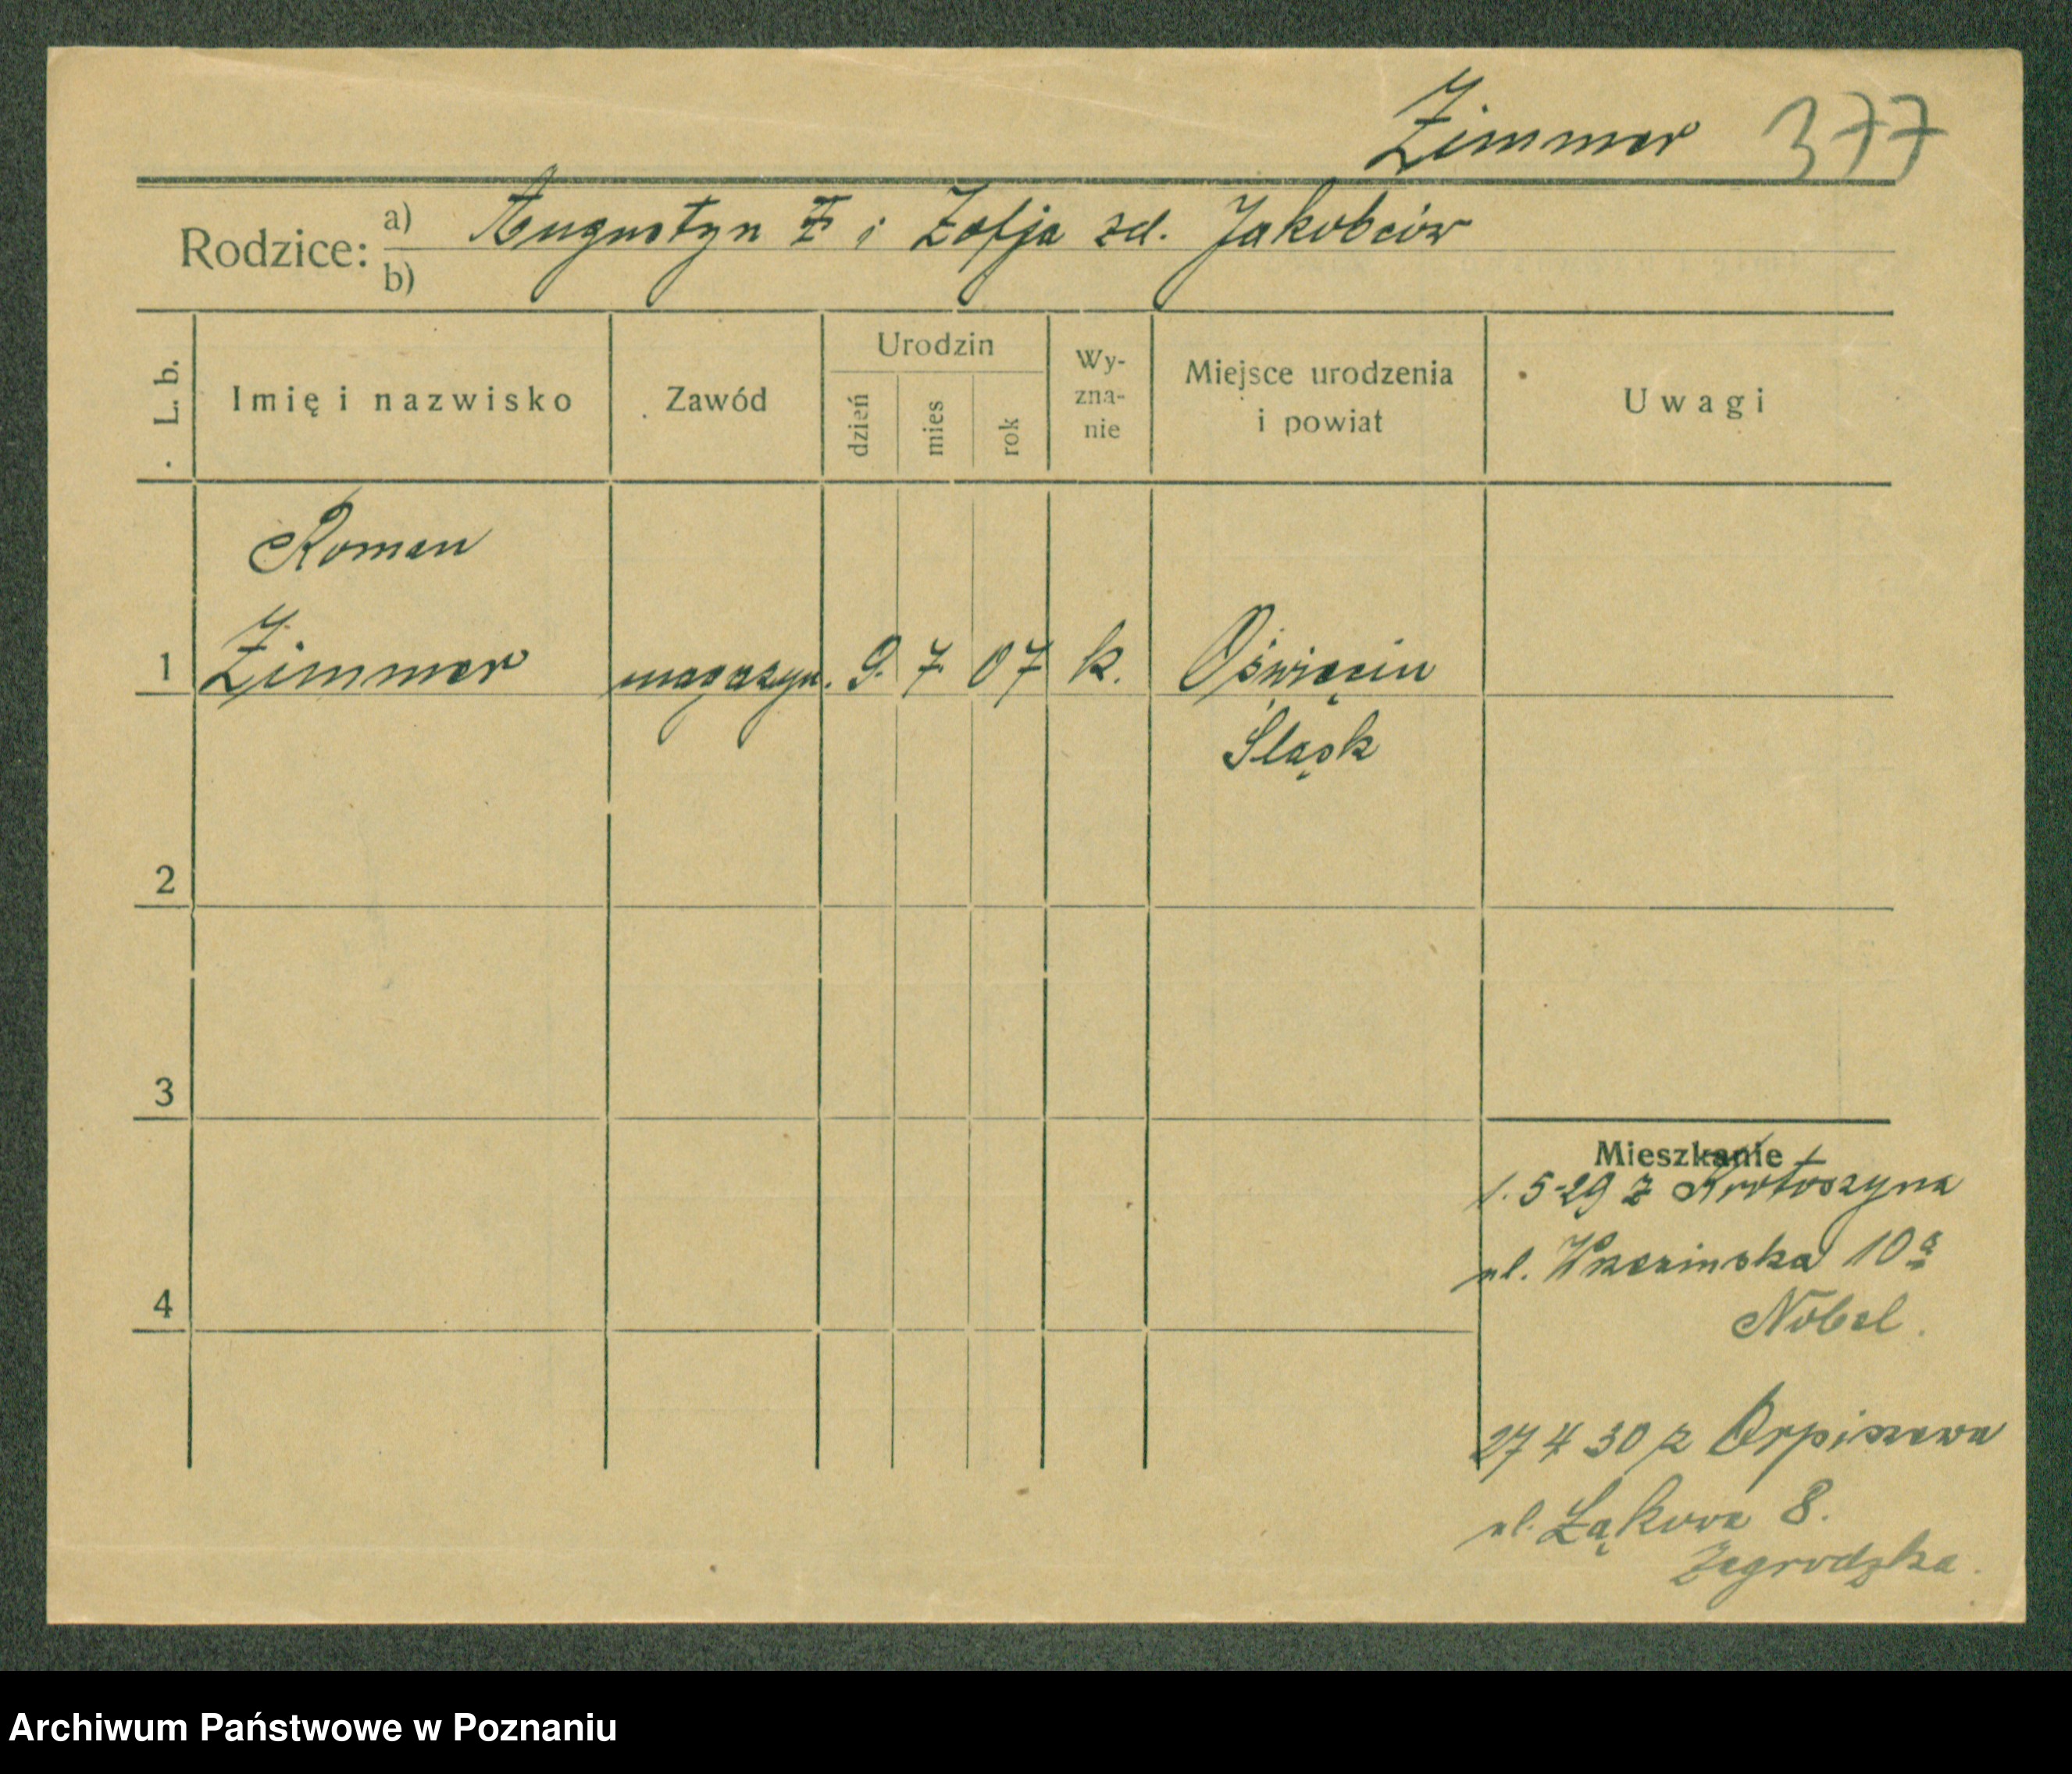 Zimmer 377
Rodzice: a) Augustyn Z i Zofja zd. Jakobców
b)
L. b.
Imię i nazwisko
Zawód
Urodzin
dzień
mies
rok
Wy-
zna-
nie
Miejsce urodzenia
i powiat
Uwagi
Roman
1 Zimmer magazyn. 9. 7. 07 k. Oświęcim
Śląsk
2
3
4
Mieszkanie
1. 5-29 z Krotoszyna
ul. 10a
Nobel.
27 4 30 z Orpiszewa
ul. Łąkowa 8.
Zagrodzka.
Archiwum Państwowe w Poznaniu